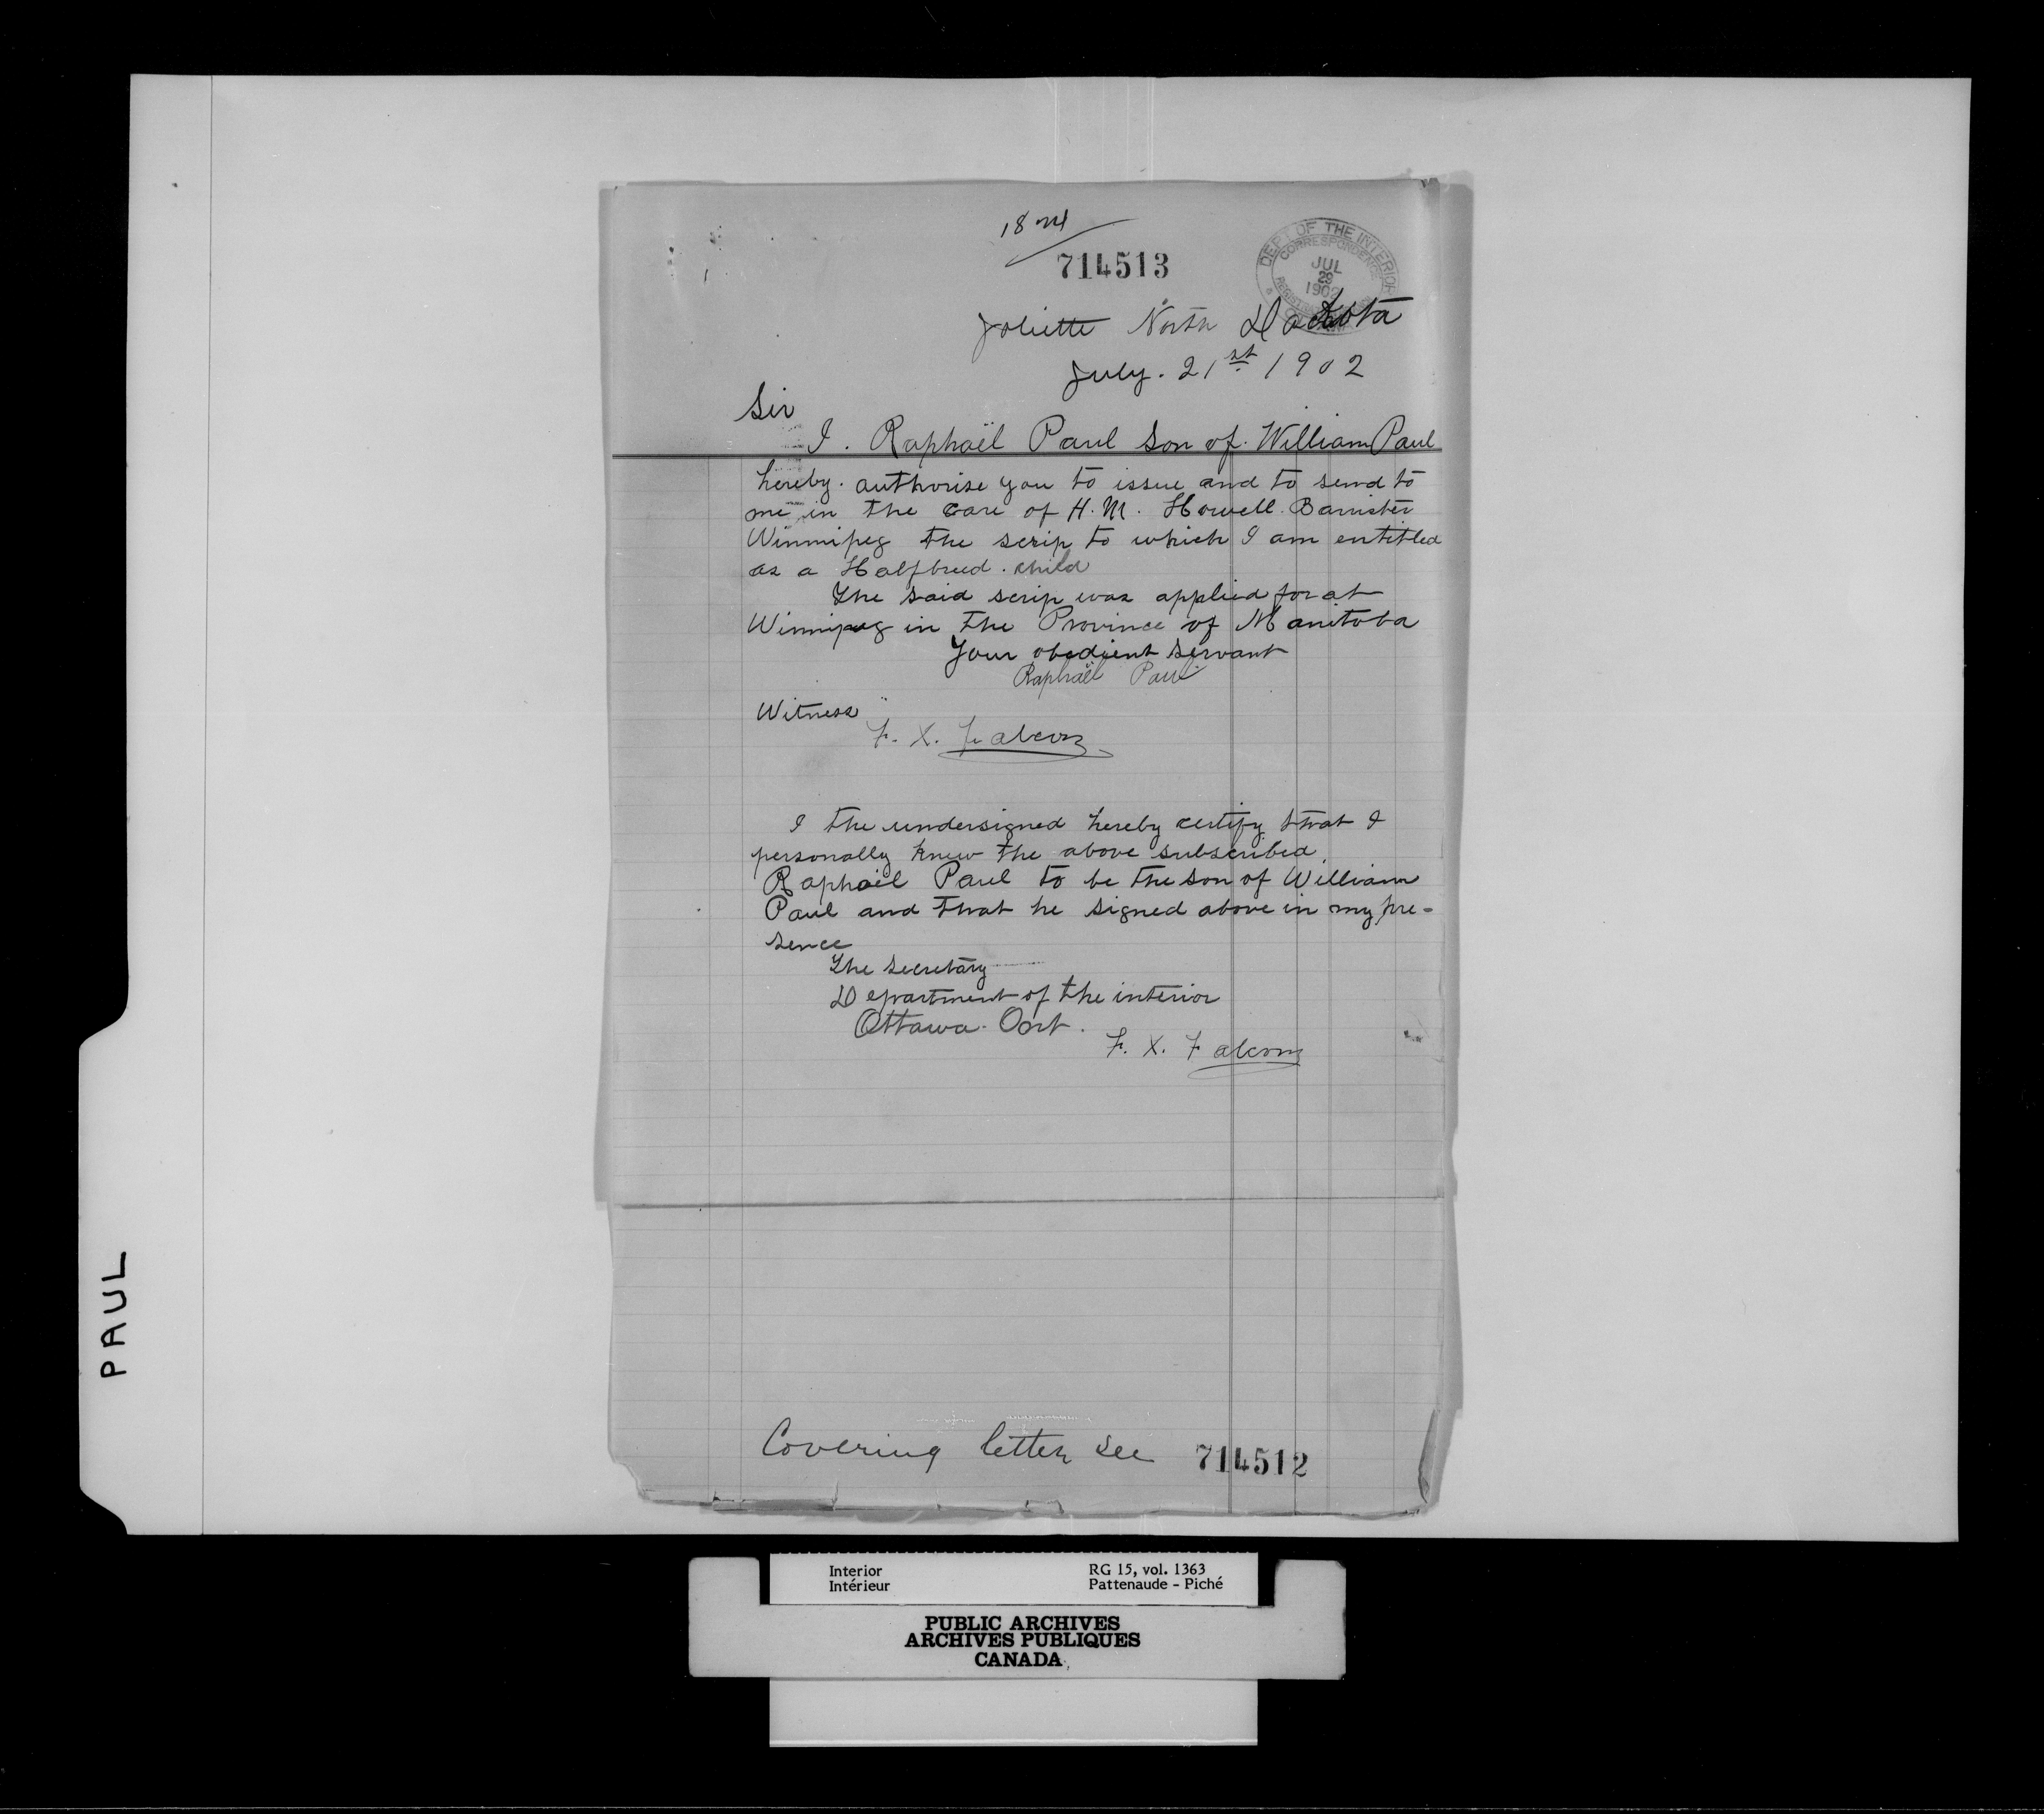 18 M
714513
DEPT OF THE INTERIOR
CORRESPONDENCE
JUL
29
1902
Joliette North Dackota
July. 21st 1902
Sir
I. Raphaël Paul Son of. William Paul
hereby. authorise you to issue and to send to
me in the care of H. M. Howell. Barrister
Winnipeg the scrip to which I am entitled
as a Halfbreed. child
The said scrip was applied for at
Winnipeg in the Province of Manitoba
Your obedient servant
Raphaël Paul
Witness
F. X. Falcon
I the undersigned hereby certify that I
personally knew the above subscribed
Raphaël Paul to be the son of William
Paul and that he signed above in my pre-
sence
The Secretary
Department of the interior
Ottawa. Ont.
F. X. Falcon
Covering letter see 714512
PAUL
Interior RG 15, vol. 1363
Intérieur Pattenaude - Piché
PUBLIC ARCHIVES
ARCHIVES PUBLIQUES
CANADA